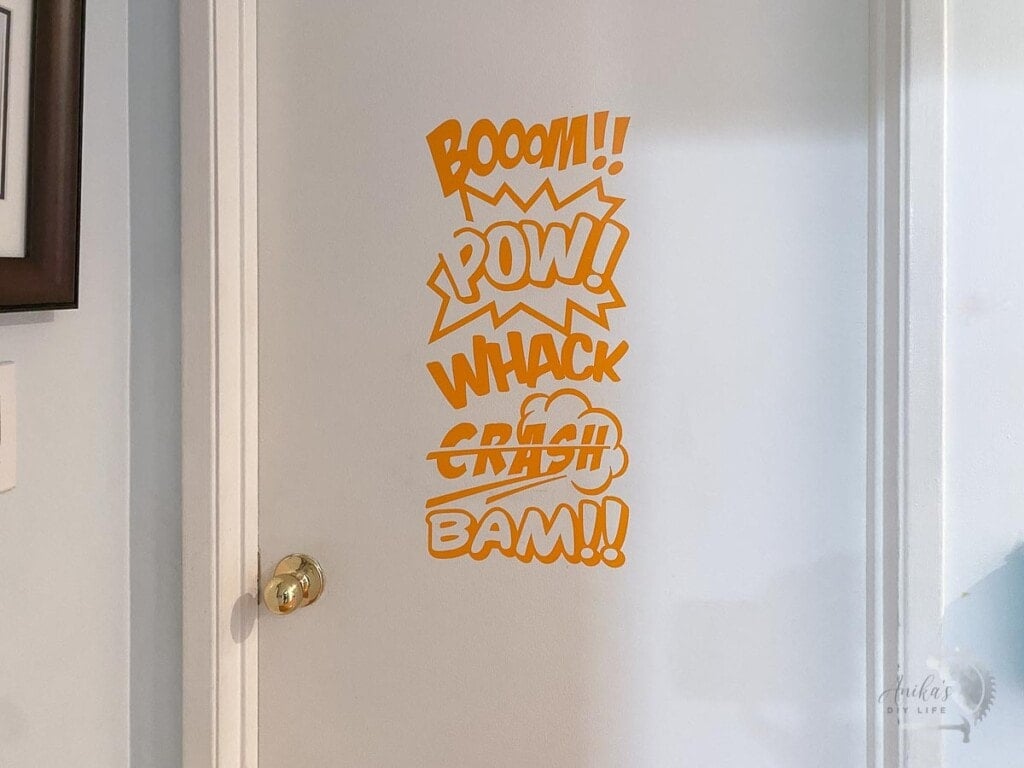 BOOOM!!
POW!
WHACK
CRASH
BAM!!
Anika's
DIY LIFE